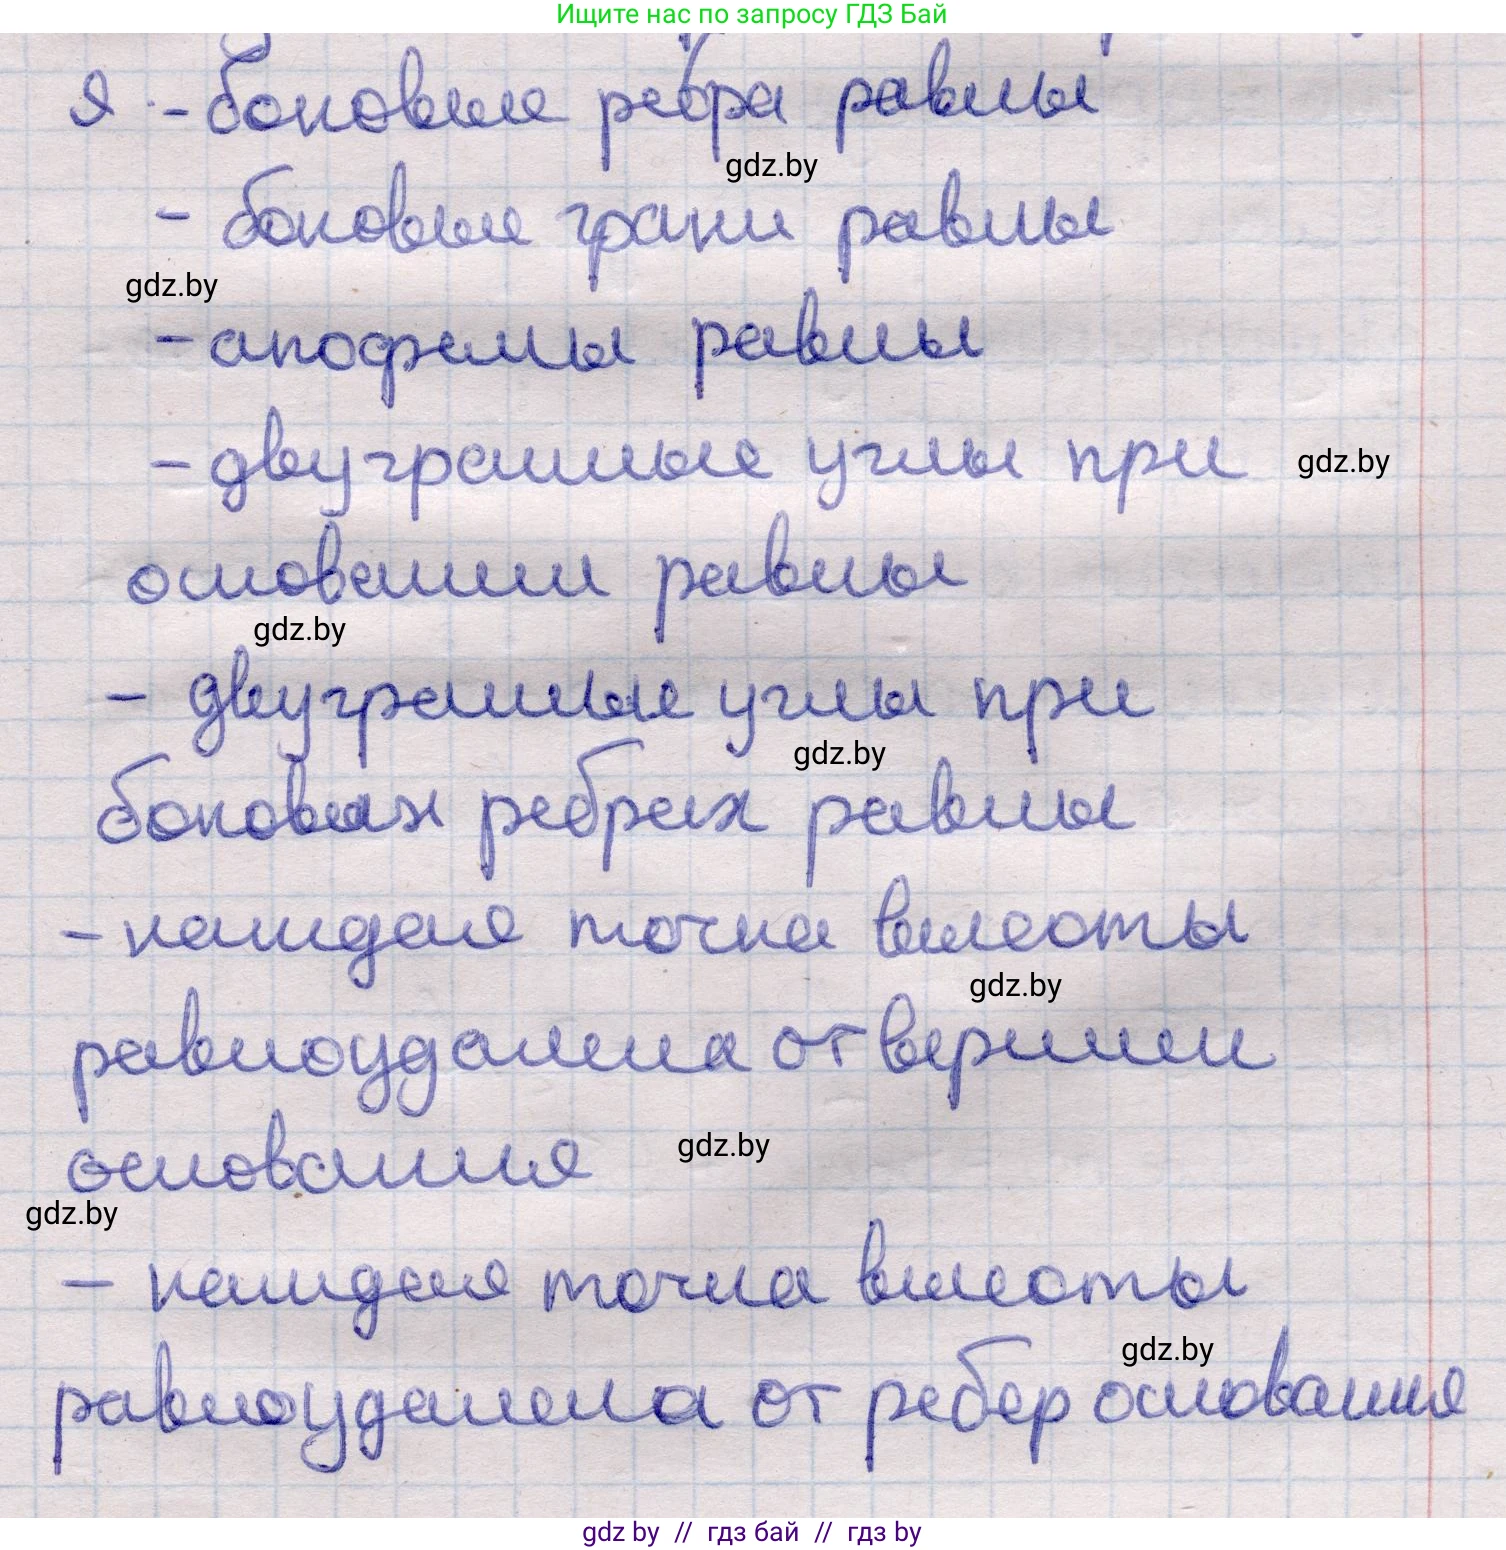 Ищите нас по запросу ГДЗ Бай
я - боковые ребра равны
gdz.by
- боковые грани равны
gdz.by
- апофемы равны
- двугранные углы при
gdz.by
основании равны
gdz.by
- двугранные углы при
gdz.by
боковых ребрах равны
- каждая точка высоты
gdz.by
равноудалена от вершин
основания
gdz.by
gdz.by
- каждая точка высоты
gdz.by
равноудалена от ребер основания
gdz by // гдз бай // гдз by